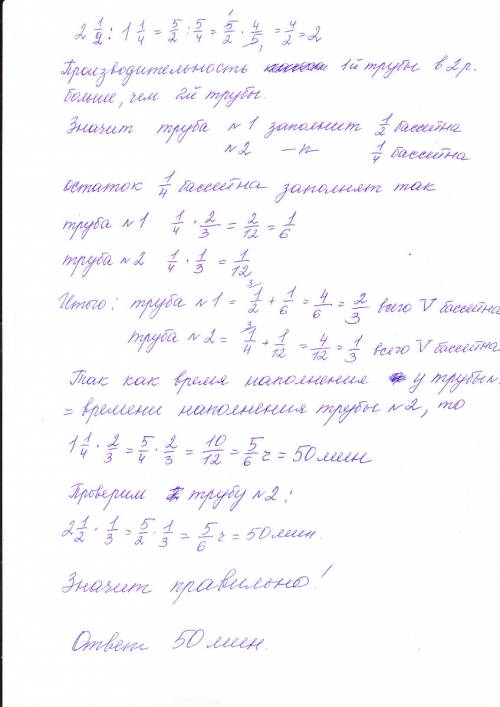 2 1/2 : 1 1/4 = 5/2 : 5/4 = 5/2 · 4/5 = 4/2 = 2
Производительность 1й трубы в 2р.
больше, чем 2й трубы.
Значит труба №1 заполнит 1/2 бассейна
№2 —"— 1/4 бассейна
остаток 1/4 бассейна заполнят так
труба №1 1/4 · 2/3 = 2/12 = 1/6
труба №2 1/4 · 1/3 = 1/12
Итого: труба №1 = 1/2 + 1/6 = 4/6 = 2/3 всего V бассейна
труба №2 = 1/4 + 1/12 = 4/12 = 1/3 всего V бассейна
Так как время наполнения у трубы №
= времени наполнения трубы №2, то
1 1/4 · 2/3 = 5/4 · 2/3 = 10/12 = 5/6 ч = 50 мин
Проверим трубу №2:
2 1/2 · 1/3 = 5/2 · 1/3 = 5/6 ч = 50 мин.
Значит правильно!
Ответ 50 мин.